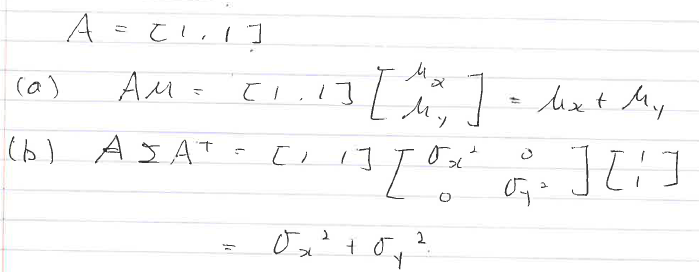 A = [1, 1]
(a) Aμ = [1, 1] [μx μy] = μx + μy
(b) AΣAᵀ = [1 1] [σx² 0 0 σy²] [1 1]
= σx² + σy².